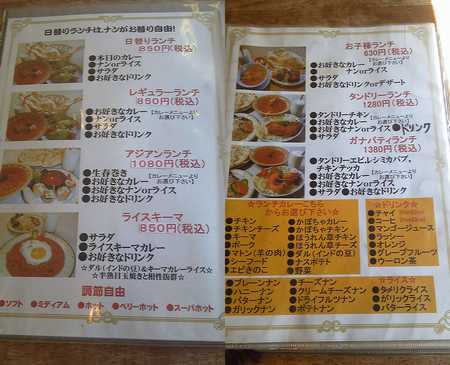 日替りランチは、ナンがお替り自由!
日替りランチ
850円(税込)
●本日のカレー
●ナンorライス
●サラダ
●お好きなドリンク
レギュラーランチ
850円(税込)
●お好きなカレー
【カレーメニューよりお選び下さい】
●ナンorライス
●サラダ
●お好きなドリンク
アジアンランチ
1080円(税込)
●生春まき
●お好きなカレー
【カレーメニューよりお選び下さい】
●お好きなナンorライス
●サラダ
●お好きなドリンク
ライスキーマ
850円(税込)
●サラダ
●ライスキーマカレー
●お好きなドリンク
☆ダル(インドの豆)&キーマカレーライス☆
☆半熟目玉焼きと相性抜群☆
調節自由
●ソフト ●ミディアム ●ホット ●ベリーホット ●スーパホット
お子様ランチ
630円(税込)
●お好きなカレー
【カレーメニューよりお選び下さい】
●ナンorライス
●サラダ
●お好きなドリンクorデザート
タンドリーランチ
1280円(税込)
●タンドリーチキン
●お好きなカレー
【カレーメニューよりお選び下さい】
●お好きなナンorライス
●ドリンク
●サラダ
ガナパティランチ
1380円(税込)
●タンドリーエビ,シシカバブ,
チキンテッカ
●お好きなカレー
【カレーメニューよりお選び下さい】
●お好きなナンorライス
●サラダ ●お好きなドリンク
☆ランチカレーこちら
からお選び下さい☆
●チキン
●チキンチーズ
●キーマ
●ポーク
●マトン(羊の肉)
●シーフード
●エビきのこ
●かぼちゃカレー
●かぼちゃチキン
●ほうれん草チキン
●ほうれん草チーズ
●ダル(インドの豆)
●ナスポテト
●野菜
☆ドリンク☆
●チャイ
●コーヒー
●マンゴージュース
●ラッシー
●オレンジ
●グレープフルーツ
●ウーロン茶
●プレーンナン
●ハニーナン
●バターナン
●ガリックナン
●チーズナン
●クリームチーズナン
●ドライフルツナン
●ポテトナン
☆ライス☆
●タメリクライス
●がリックライス
●バターライス